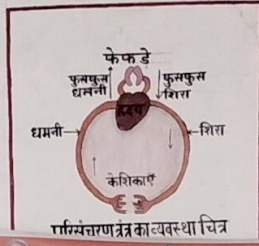 फेफड़े
फुसफुस धमनी
फुसफुस शिरा
हृदय
धमनी
शिरा
केशिकाएँ
परिसंचरण तंत्र का व्यवस्था चित्र